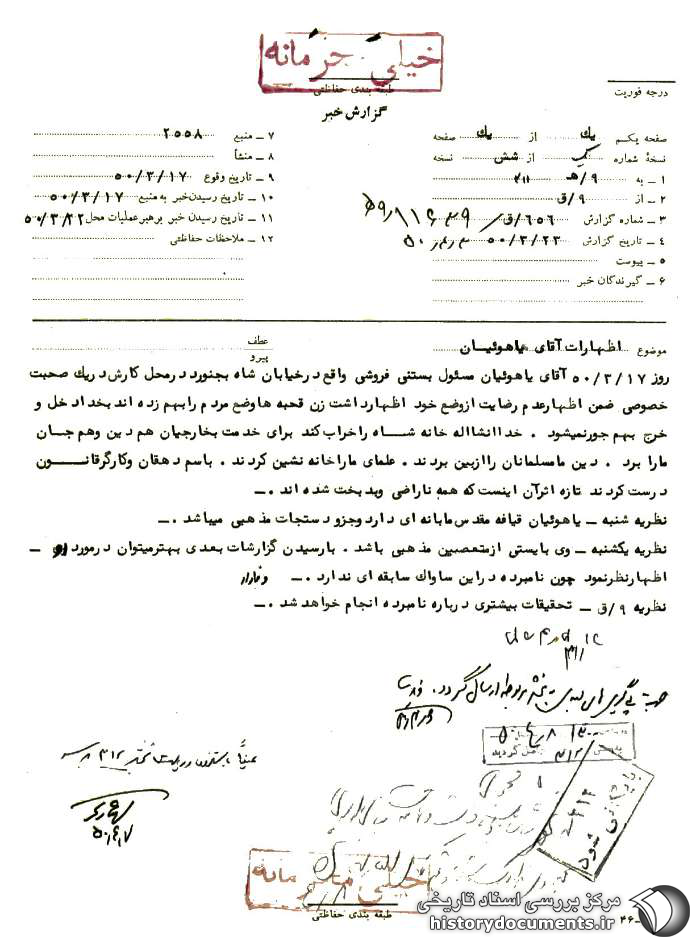 خیلی محرمانه
طبقه بندی حفاظتی
گزارش خبر
درجه فوریت
صفحه یکم یك از یك صفحه
نسخهٔ شماره یک از شش نسخه
۱ ـ به ۹/هـ ۳۱۱
۲ ـ از ۹/ق
۳ ـ شماره گزارش ۶۵۶/ق
۴ ـ تاریخ گزارش ۵۰/۳/۲۳
۵ ـ پیوست
۶ ـ گیرندگان خبر
۷ ـ منبع ۲۵۵۸
۸ ـ منشأ
۹ ـ تاریخ وقوع ۵۰/۳/۱۷
۱۰ ـ تاریخ رسیدن خبر به منبع ۵۰/۳/۱۷
۱۱ ـ تاریخ رسیدن خبر برهبر عملیات محل ۵۰/۳/۲۲
۱۲ ـ ملاحظات حفاظتی
موضوع اظهارات آقای یاهوئیان
عطف
پیرو
روز ۵۰/۳/۱۷ آقای یاهوئیان مسئول بستنی فروشی واقع در خیابان شاه بجنورد در محل کارش در یك صحبت
خصوصی ضمن اظهار عدم رضایت از وضع خود اظهار داشت زن قحبه ها وضع مردم را بهم زده اند بخدا دخل و
خرج بهم جور نمیشود . خدا انشااله خانه شاه را خراب کند برای خدمت بخارجیان هم دین وهم جان
مارا برد . دین ما مسلمانان را ازبین بردند . علمای مارا خانه نشین کردند . باسم دهقان وکارگر قانون
درست کردند تازه اثر آن اینست که همه ناراضی وبدبخت شده اند .ـ
نظریه شنبه ـ یاهوئیان قیافه مقدس مابانه ای دارد وجزو دستجات مذهبی میباشد .ـ
نظریه یکشنبه ـ وی بایستی ازمتعصبین مذهبی باشد . با رسیدن گزارشات بعدی بهتر میتوان در مورد وی ـ
اظهارنظر نمود چون نامبرده در این ساواك سابقه ای ندارد .ـ
نظریه ۹/ق ـ تحقیقات بیشتری درباره نامبرده انجام خواهد شد .ـ
۳۱۱
بایگانی شود
۳۱۲
خیلی محرمانه
طبقه بندی حفاظتی
مرکز بررسی اسناد تاریخی
historydocuments.ir
۴۶ـ